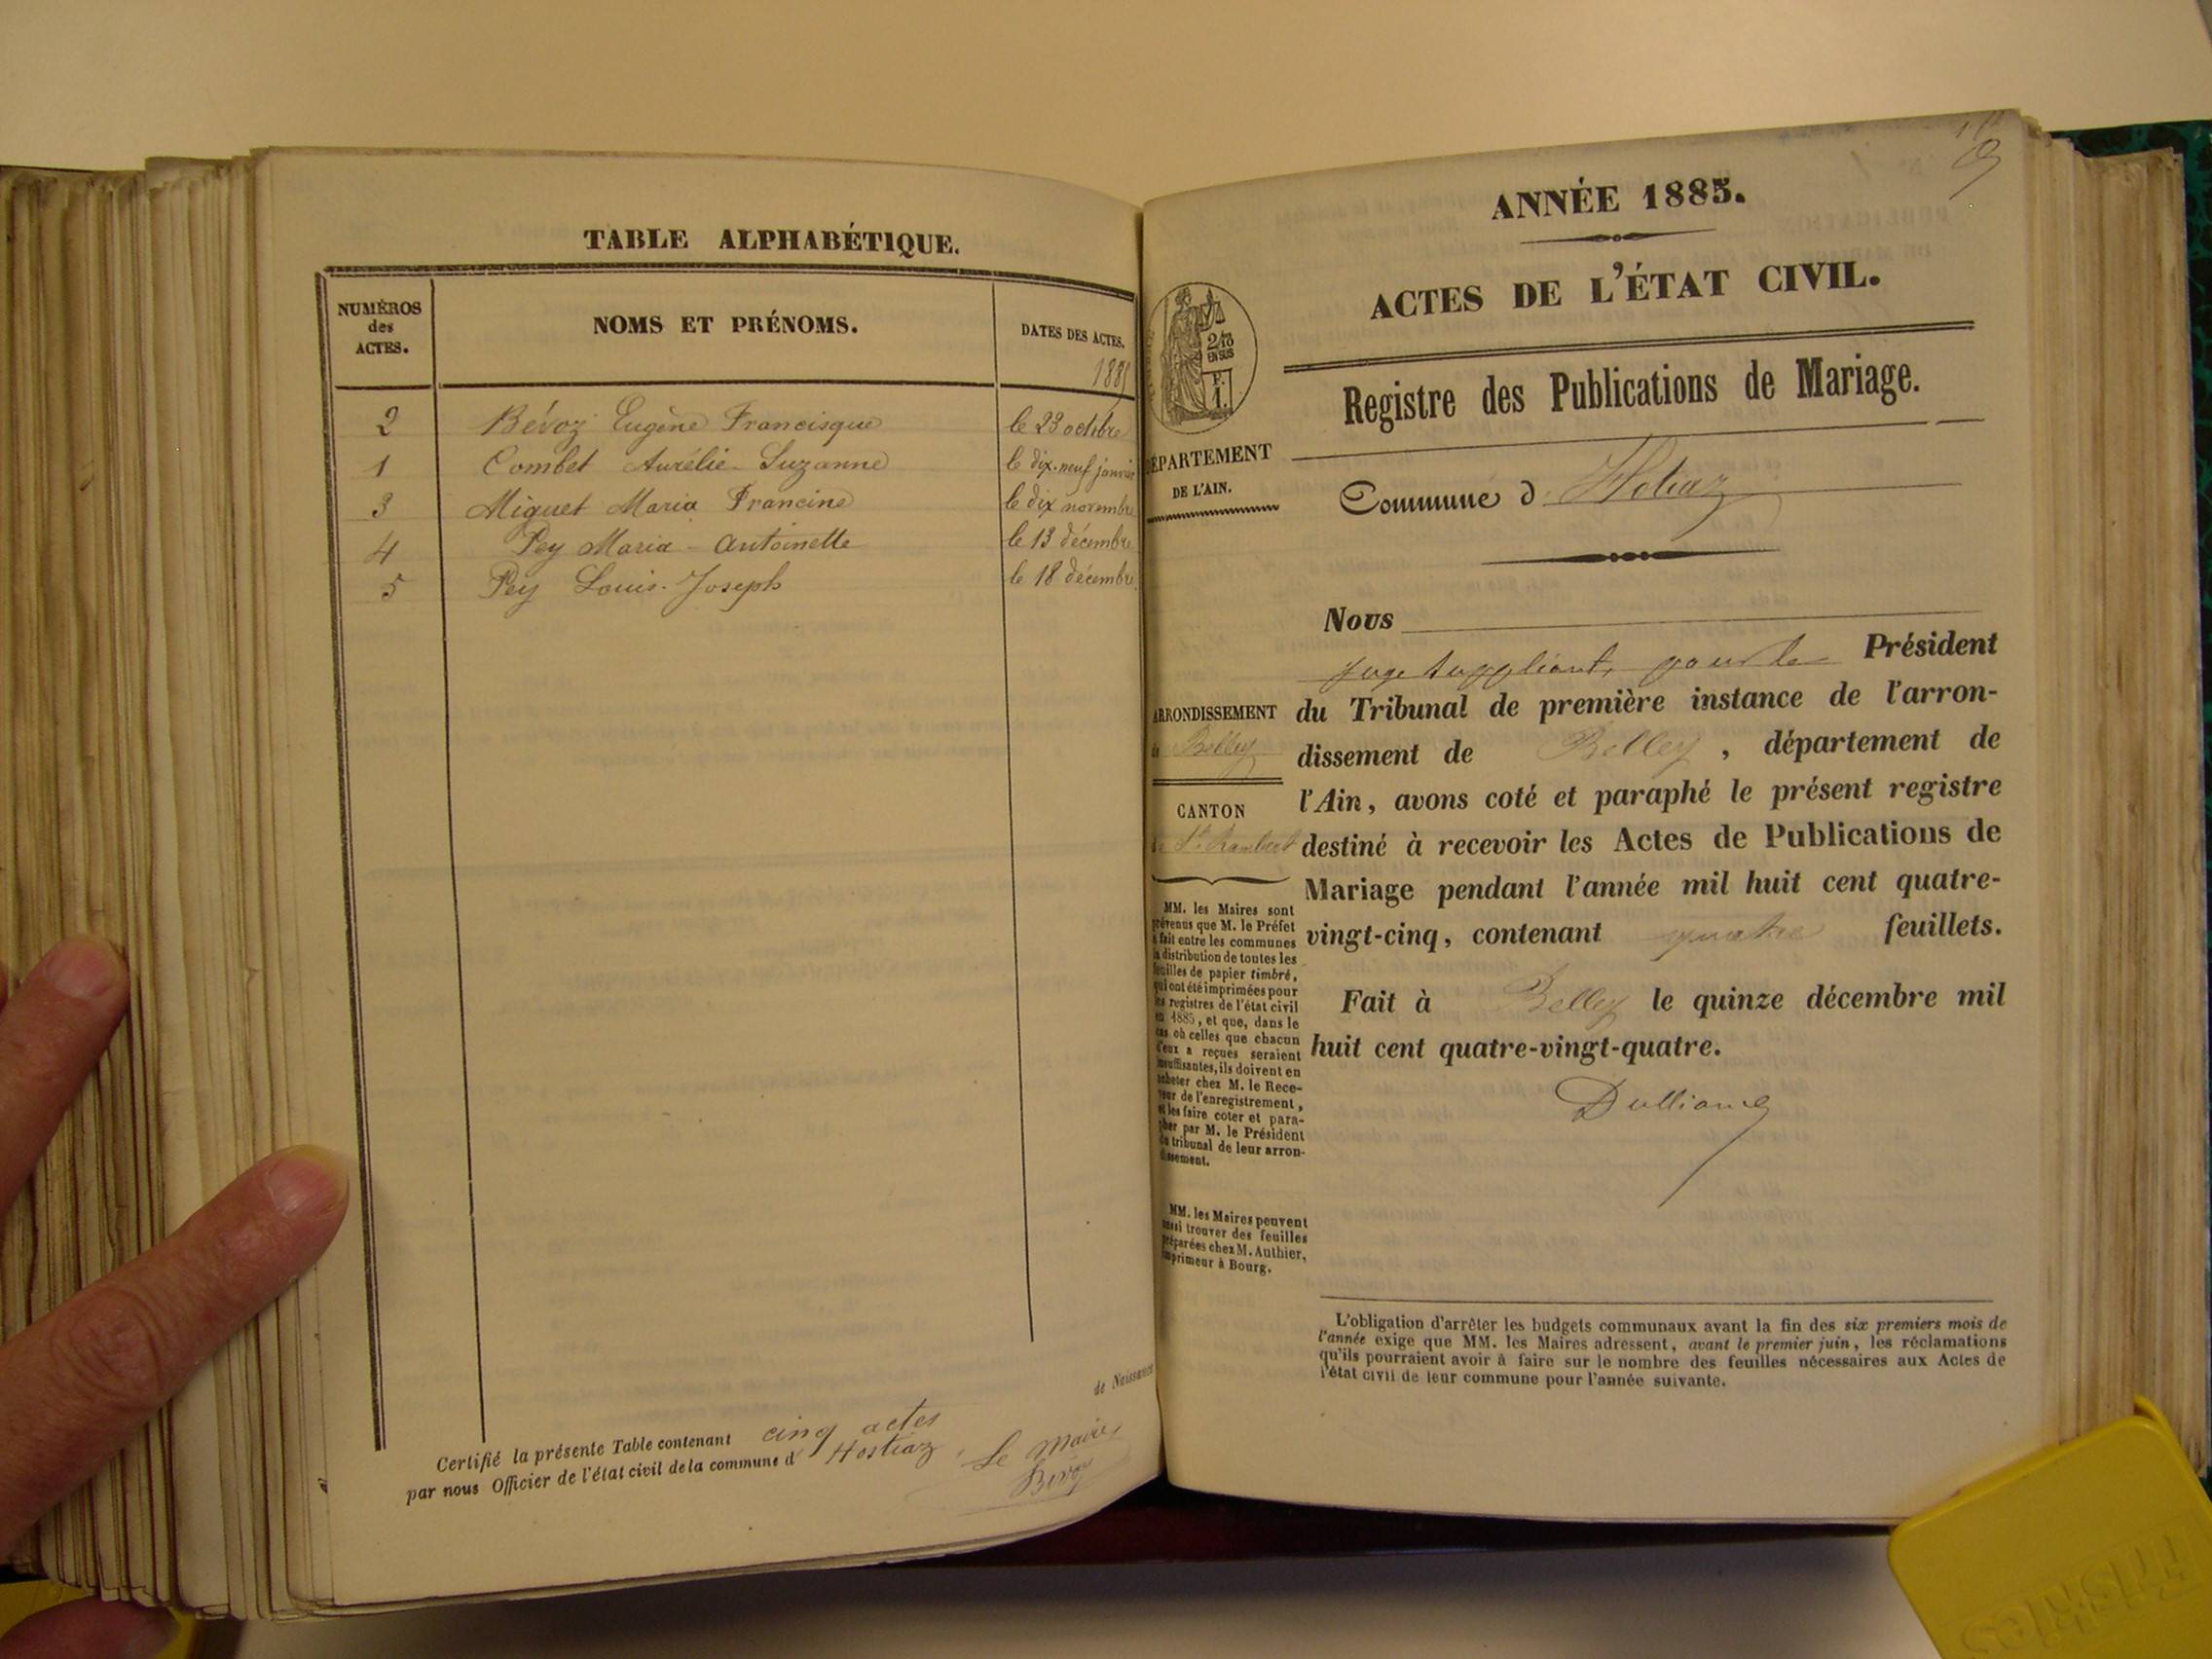 TABLE ALPHABÉTIQUE.
NUMÉROS
des
ACTES.
NOMS ET PRÉNOMS.
DATES DES ACTES.
2 Bévoz Eugène Francisque le 23 octobre
1 Combet Aurélie-Suzanne le dix-neuf janvier
3 Miguet Maria Francine le dix novembre
4 Pey Maria-Antoinette le 13 décembre
5 Pey Louis-Joseph le 18 décembre
de Naissances
Certifié la présente Table contenant cinq actes
par nous Officier de l'état civil de la commune d'Hostiaz, Le Maire,
Bévoz
ANNÉE 1885.
ACTES DE L'ÉTAT CIVIL.
Registre des Publications de Mariage.
Commune d'
2/10
EN SUS
DÉPARTEMENT
DE L'AIN.
ARRONDISSEMENT
de Belley
CANTON
de St Rambert
MM. les Maires sont
prévenus que M. le Préfet
a fait entre les communes
la distribution de toutes les
feuilles de papier timbré,
qui ont été imprimées pour
les registres de l'état civil
en 1885, et que, dans le
cas où celles que chacun
d'eux a reçues seraient
insuffisantes, ils doivent en
acheter chez M. le Rece-
veur de l'enregistrement,
et les faire coter et para-
pher par M. le Président
du tribunal de leur arron-
dissement.
MM. les Maires peuvent
aussi trouver des feuilles
préparées chez M. Authier,
imprimeur à Bourg.
Nous
juge suppléant, pour le Président
du Tribunal de première instance de l'arron-
dissement de Belley, département de
l'Ain, avons coté et paraphé le présent registre
destiné à recevoir les Actes de Publications de
Mariage pendant l'année mil huit cent quatre-
vingt-cinq, contenant quatre feuillets.
Fait à Belley le quinze décembre mil
huit cent quatre-vingt-quatre.
L'obligation d'arrêter les budgets communaux avant la fin des six premiers mois de
l'année exige que MM. les Maires adressent, avant le premier juin, les réclamations
qu'ils pourraient avoir à faire sur le nombre des feuilles nécessaires aux Actes de
l'état civil de leur commune pour l'année suivante.
Friskies